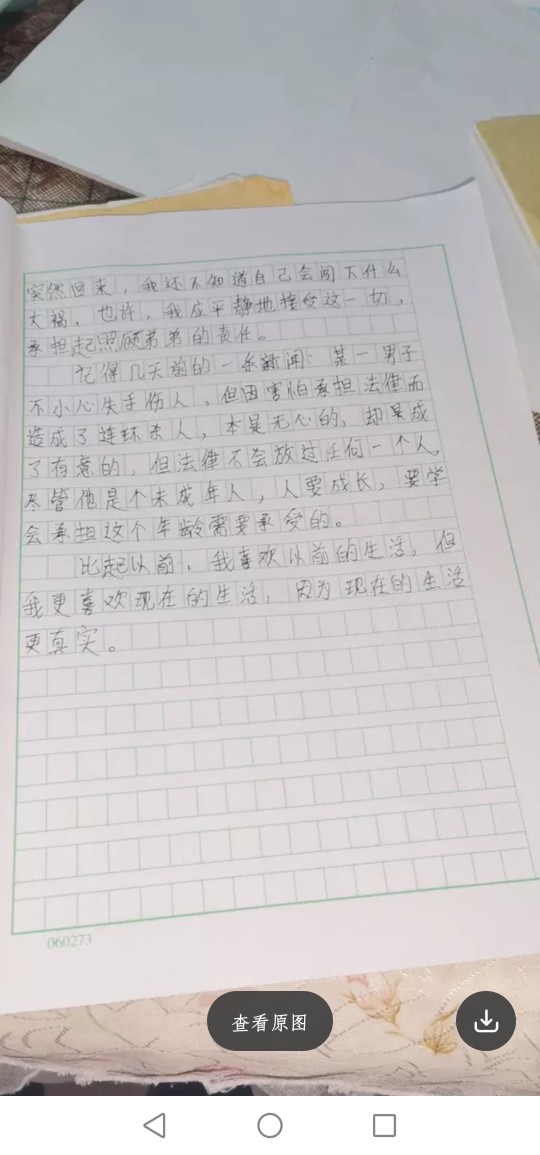 突然回来，我还不知道自己会闯下什么
大祸。也许，我应平静地接受这一切，
承担起照顾弟弟的责任。
记得几天前的一条新闻：某一男子
不小心失手伤人，但因害怕承担法律而
造成了连环杀人，本是无心的，却某成
了有意的，但法律不会放过任何一个人，
尽管他是个未成年人，人要成长，要学
会承担这个年龄需要承受的。
比起以前，我喜欢以前的生活，但
我更喜欢现在的生活，因为现在的生活
更真实。
060273
查看原图